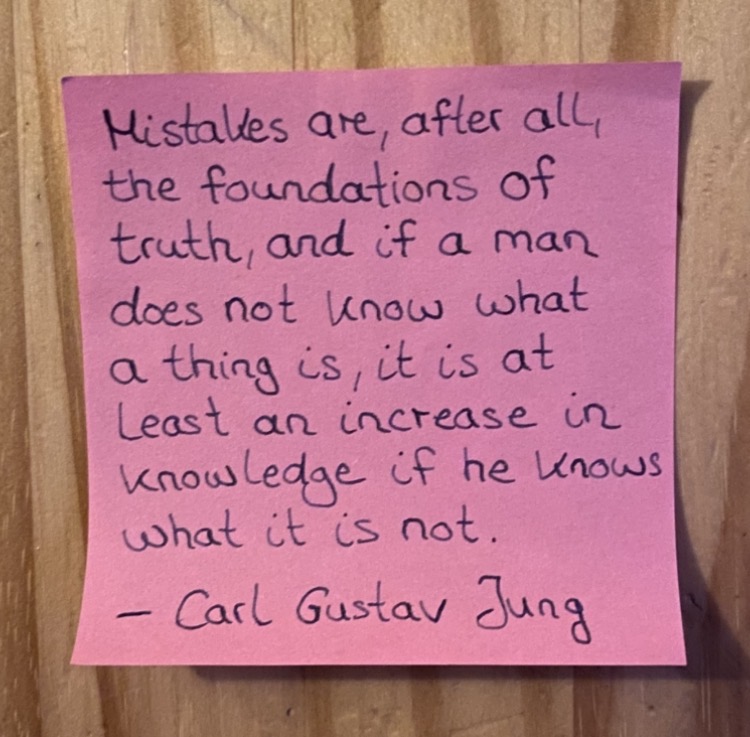 Mistakes are, after all,
the foundations of
truth, and if a man
does not know what
a thing is, it is at
least an increase in
knowledge if he knows
what it is not.
– Carl Gustav Jung